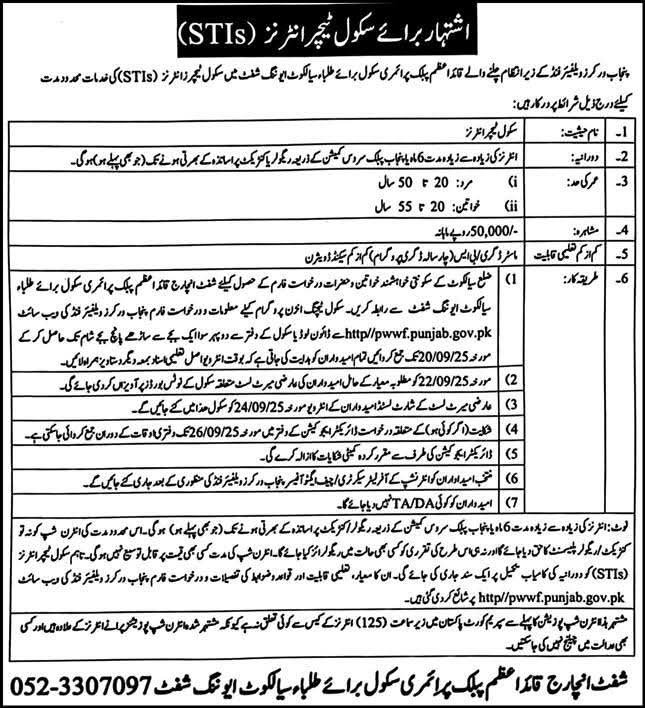 اشتہار برائے سکول ٹیچر انٹرنز (STIs)
پنجاب ورکرز ویلفیئر فنڈ کے زیر انتظام چلنے والے قائد اعظم پبلک پرائمری سکول برائے طلباء سیالکوٹ ایوننگ شفٹ میں سکول ٹیچرز انٹرنز (STIs) کی خدمات محدود مدت
کیلئے درج ذیل شرائط پر درکار ہیں:
1۔ نام حیثیت: سکول ٹیچر انٹرنز
2۔ دورانیہ: انٹرنز کی زیادہ سے زیادہ مدت 6 ماہ یا پنجاب پبلک سروس کمیشن کے ذریعہ ریگولر یا کنٹریکٹ پر اساتذہ کے بھرتی ہونے تک (جو بھی پہلے ہو) ہوگی۔
3۔ عمر کی حد: i) مرد: 20 تا 50 سال
ii) خواتین: 20 تا 55 سال
4۔ مشاہرہ: 50,000/- روپے ماہانہ
5۔ کم از کم تعلیمی قابلیت ماسٹر ڈگری/بی ایس (چار سالہ ڈگری پروگرام) کم از کم سیکنڈ ڈویژن
6۔ طریقہ کار: 1) ضلع سیالکوٹ کے سکونتی خواہشمند خواتین و حضرات درخواست فارم کے حصول کیلئے شفٹ انچارج قائد اعظم پبلک پرائمری سکول برائے طلباء
سیالکوٹ ایوننگ شفٹ سے رابطہ کریں۔ سکول ٹیچنگ انٹرن پروگرام کیلئے معلومات و درخواست فارم پنجاب ورکرز ویلفیئر فنڈ کی ویب سائٹ
http//pwwf.punjab.gov.pk سے ڈاؤن لوڈ یا سکول کے دفتر سے دوپہر سوا ایک بجے سے ساڑھے پانچ بجے شام تک حاصل کر کے
مورخہ 20/09/25 تک جمع کروائیں تمام امیدواران کو ہدایت کی جاتی ہے کہ بوقت انٹرویو اصل تعلیمی اسناد بمعہ دیگر دستاویز ہمراہ لائیں۔
2) مورخہ 22/09/25 کو مطلوبہ معیار کے حامل امیدواران کی عارضی میرٹ لسٹ متعلقہ سکول کے نوٹس بورڈز پر آویزاں کر دی جائے گی۔
3) عارضی میرٹ لسٹ کے شارٹ لسٹڈ امیدواران کے انٹرویو مورخہ 24/09/25 کو سکول ھذا میں کئے جائیں گے۔
4) شکایت (اگر کوئی ہو) کے متعلقہ درخواست ڈائریکٹر ایجوکیشن کے دفتر میں مورخہ 26/09/25 تک دفتری اوقات کے دوران جمع کروائی جاسکتی ہے۔
5) ڈائریکٹر ایجوکیشن کی طرف سے مقرر کردہ کمیٹی شکایات کا ازالہ کرے گی۔
6) منتخب امیدواران کو انٹرنشپ کے آفر لیٹر سیکرٹری/چیف ایگزیکٹو آفیسر پنجاب ورکرز ویلفیئر فنڈ کی منظوری کے بعد جاری کئے جائیں گے۔
7) امیدواران کو کوئی TA/DA نہیں دیا جائے گا۔
نوٹ: انٹرنز کی زیادہ سے زیادہ مدت 6 ماہ یا پنجاب پبلک سروس کمیشن کے ذریعہ ریگولر/کنٹریکٹ پر اساتذہ کے بھرتی ہونے تک (جو بھی پہلے ہو) ہوگی۔ اس محدود مدت کی انٹرن شپ کو نہ تو
کنٹریکٹ/ریگولر پلیسمنٹ کا حق دیا جائے گا اور نہ ہی اس طرح کی تقرری کو کسی بھی حالت میں ریگولرائز کیا جائے گا۔ انٹرن شپ کی مدت کسی بھی قیمت پر قابل توسیع نہیں ہوگی۔ تاہم سکول ٹیچر انٹرنز
(STIs) کو دورانیہ کی کامیاب تکمیل پر ایک سند جاری کی جائے گی۔ ان کا معیار، تعلیمی قابلیت اور قواعد و ضوابط کی تفصیلات و درخواست فارم پنجاب ورکرز ویلفیئر فنڈ کی ویب سائٹ
http//pwwf.punjab.gov.pk پر شائع کر دی گئی ہیں۔
مشتہر ہذا انٹرن شپ پوزیشن کا پہلے سے سپریم کورٹ پاکستان میں زیر سماعت (125) انٹرنز کے کیس سے کوئی تعلق نہ ہے کیونکہ مشتہر شدہ انٹرن شپ پوزیشنز پرانے انٹرنز کے علاوہ ہیں اور کسی
بھی عدالت میں چیلنج نہیں کی جاسکتیں۔
شفٹ انچارج قائد اعظم پبلک پرائمری سکول برائے طلباء سیالکوٹ ایوننگ شفٹ 052-3307097